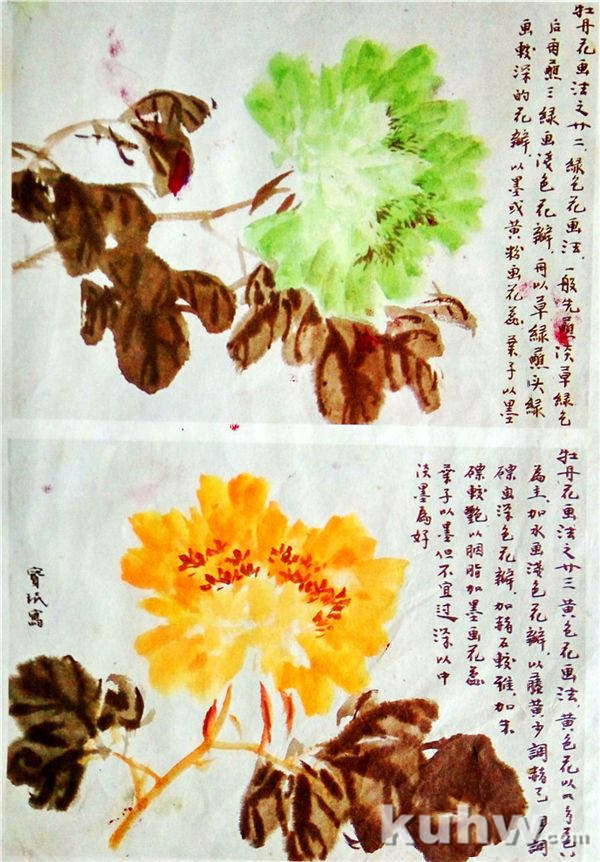 牡丹花画法之廿二、绿色花画法，一般先蘸淡草绿色
后再蘸三绿画浅色花瓣，再以草绿蘸头绿
画较深的花瓣，以墨或黄粉画花蕊，叶子以墨
牡丹花画法之廿三黄色花画法，黄色花以
为主，加水画浅色花瓣，以藤黄少调赭石
磦画深色花瓣，加赭石较雅，加朱
磦较艳以胭脂加墨画花蕊
叶子以墨但不宜过深以中
淡墨为好
写
kuhw.com